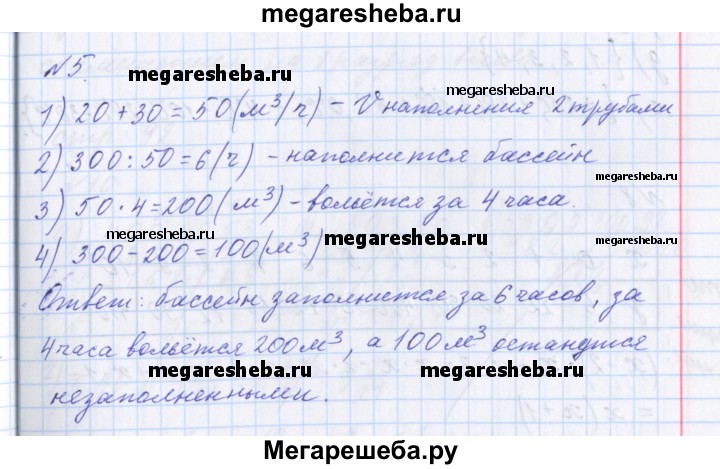 megaresheba.ru
№5.
megaresheba.ru
megaresheba.ru
1) 20+30=50(м³/ч) – V наполнения 2 трубами
2) 300:50=6(ч) – наполнится бассейн
megaresheba.ru
megaresheba.ru
3) 50·4=200(м³) – вольётся за 4 часа.
4) 300-200=100(м³)
megaresheba.ru
megaresheba.ru
Ответ: бассейн заполнится за 6 часов, за
4 часа вольётся 200м³, а 100м³ останутся
megaresheba.ru
megaresheba.ru
незаполненными.
= x(x+1)
Мегарешеба.ру